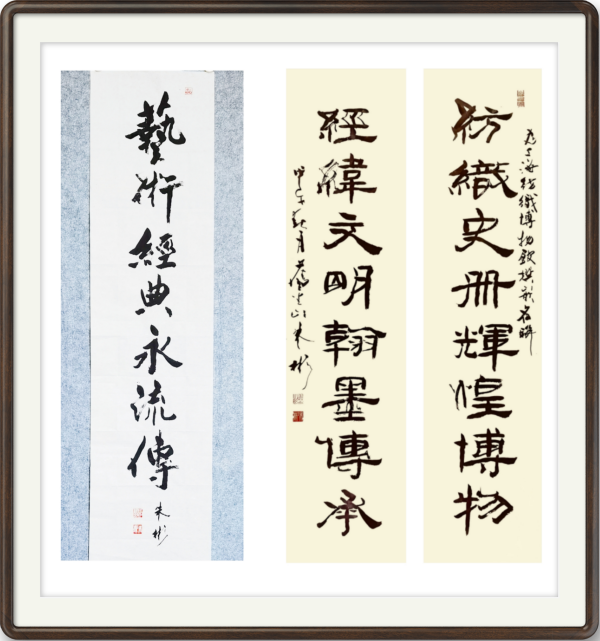 紡織史冊輝煌博物
為上海紡織博物館撰嵌名聯
經緯文明翰墨傳承
甲午秋月 山朱彬
藝術經典永流傳
朱彬